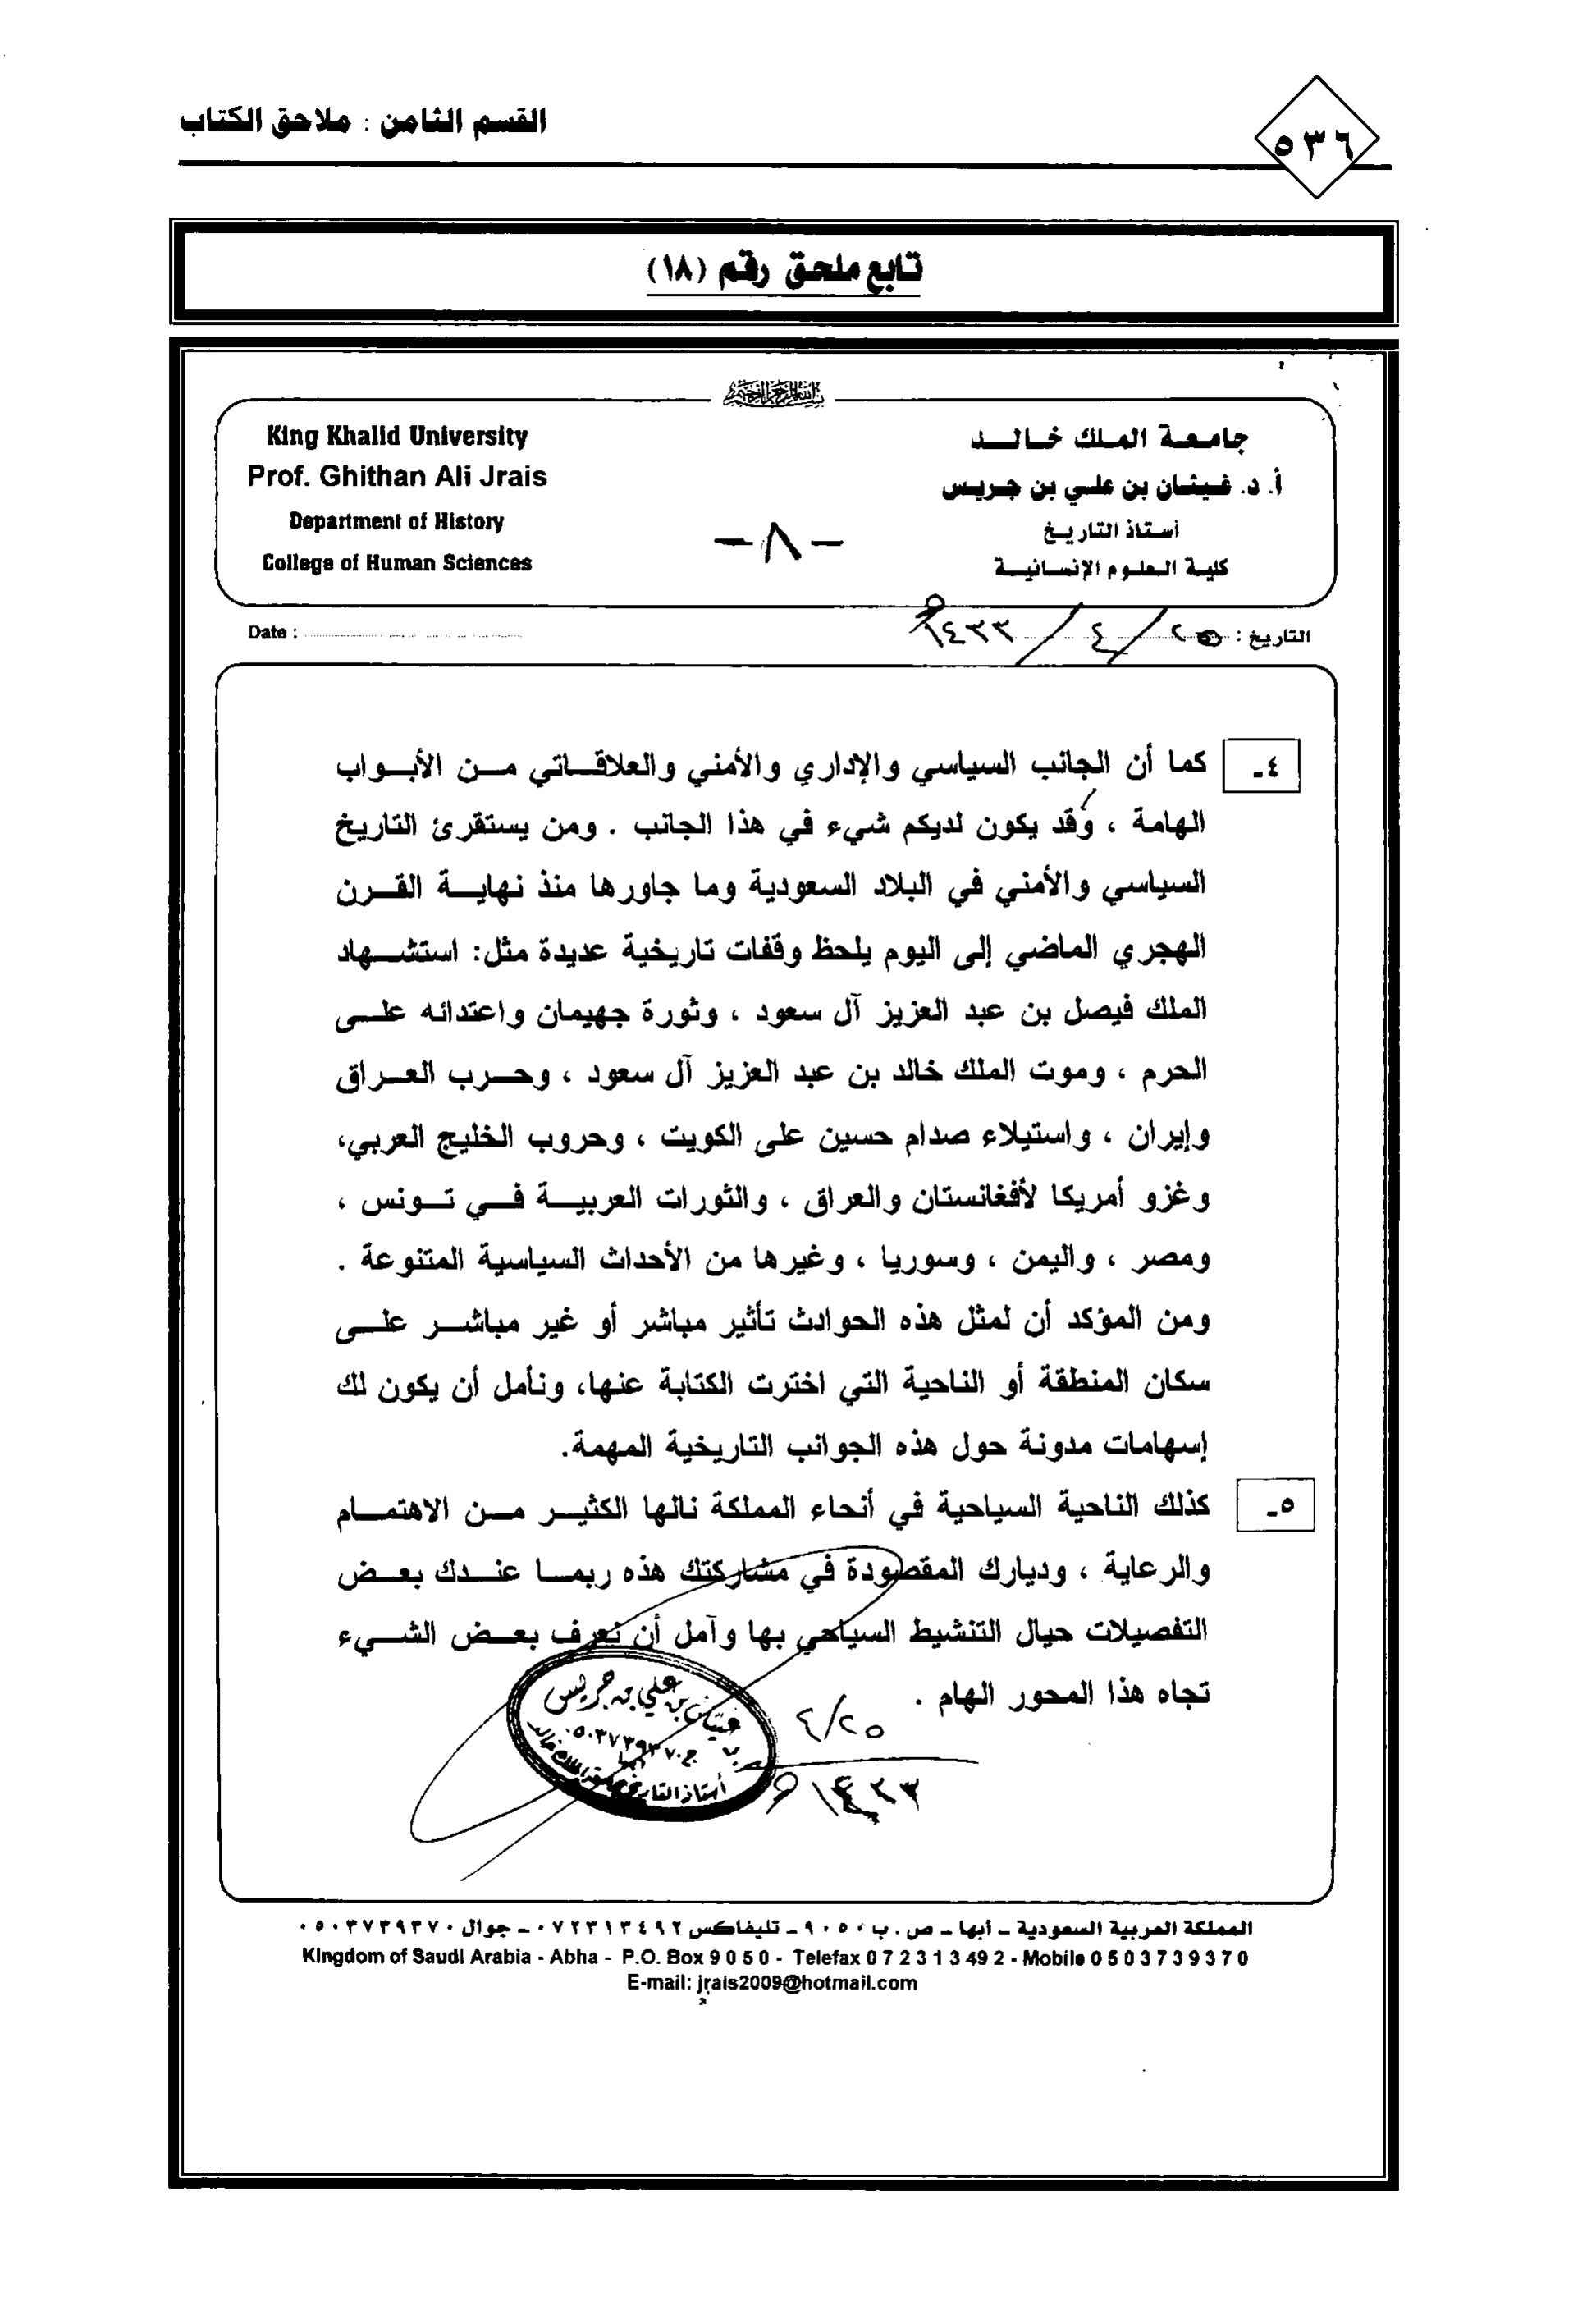 ٥٣٦
القسم الثامن : ملاحق الكتاب
تابع ملحق رقم (١٨)
جامعة الملك خالد
أ. د. غيثان بن علي بن جريس
أستاذ التاريخ
كلية العلوم الإنسانية
-٨-
King Khalid University
Prof. Ghithan Ali Jrais
Department of History
College of Human Sciences
التاريخ : ٢٥/٤/١٤٣٣هـ
Date :
٤- كما أن الجانب السياسي والإداري والأمني والعلاقاتي من الأبواب
الهامة ، وقد يكون لديكم شيء في هذا الجانب . ومن يستقرئ التاريخ
السياسي والأمني في البلاد السعودية وما جاورها منذ نهاية القرن
الهجري الماضي إلى اليوم يلحظ وقفات تاريخية عديدة مثل: استشهاد
الملك فيصل بن عبد العزيز آل سعود ، وثورة جهيمان واعتدائه على
الحرم ، وموت الملك خالد بن عبد العزيز آل سعود ، وحرب العراق
وإيران ، واستيلاء صدام حسين على الكويت ، وحروب الخليج العربي،
وغزو أمريكا لأفغانستان والعراق ، والثورات العربية في تونس ،
ومصر ، واليمن ، وسوريا ، وغيرها من الأحداث السياسية المتنوعة .
ومن المؤكد أن لمثل هذه الحوادث تأثير مباشر أو غير مباشر على
سكان المنطقة أو الناحية التي اخترت الكتابة عنها، ونأمل أن يكون لك
إسهامات مدونة حول هذه الجوانب التاريخية المهمة.
٥- كذلك الناحية السياحية في أنحاء المملكة نالها الكثير من الاهتمام
والرعاية ، وديارك المقصودة في مشاركتك هذه ربما عندك بعض
التفصيلات حيال التنشيط السياحي بها وآمل أن نعرف بعض الشيء
تجاه هذا المحور الهام .
٢٥/٤
١٤٣٣هـ
غيثان بن علي بن جريس
ج٠٥٠٣٧٣٩٣٧٠
أستاذ التاريخ بجامعة الملك خالد
المملكة العربية السعودية - أبها - ص . ب ٩٠٥٠ - تليفاكس ٠٧٢٣١٣٤٩٢ - جوال ٠٥٠٣٧٣٩٣٧٠
Kingdom of Saudi Arabia - Abha - P.O. Box 9050 - Telefax 072313492 - Mobile 0503739370
E-mail: jrais2009@hotmail.com